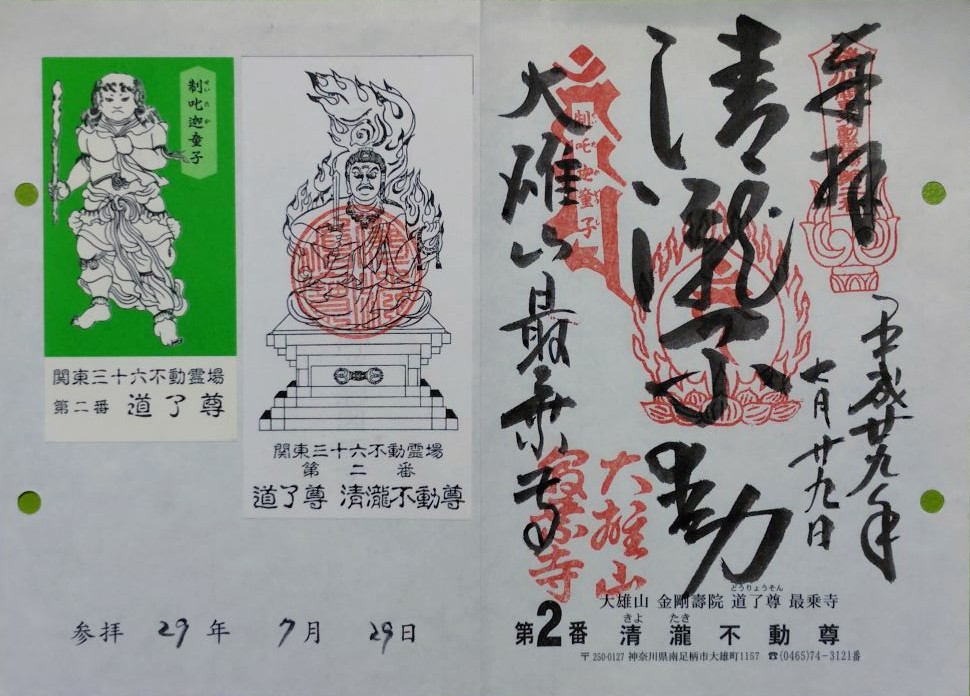 制吒迦童子
せいたか
関東三十六不動霊場
第二番 道了尊
関東三十六不動霊場
第二番
道了尊 清瀧不動尊
参拝 29年 7月 29日
奉拝
平成廿九年
七月廿九日
清瀧不動
大雄山最乗寺
制吒迦童子
大雄山
最乗寺
大雄山 金剛壽院 道了尊 最乗寺
どうりょうそん
第2番 清瀧不動尊
きよ たき
〒250-0127 神奈川県南足柄市大雄町1157 ☎(0465)74-3121番